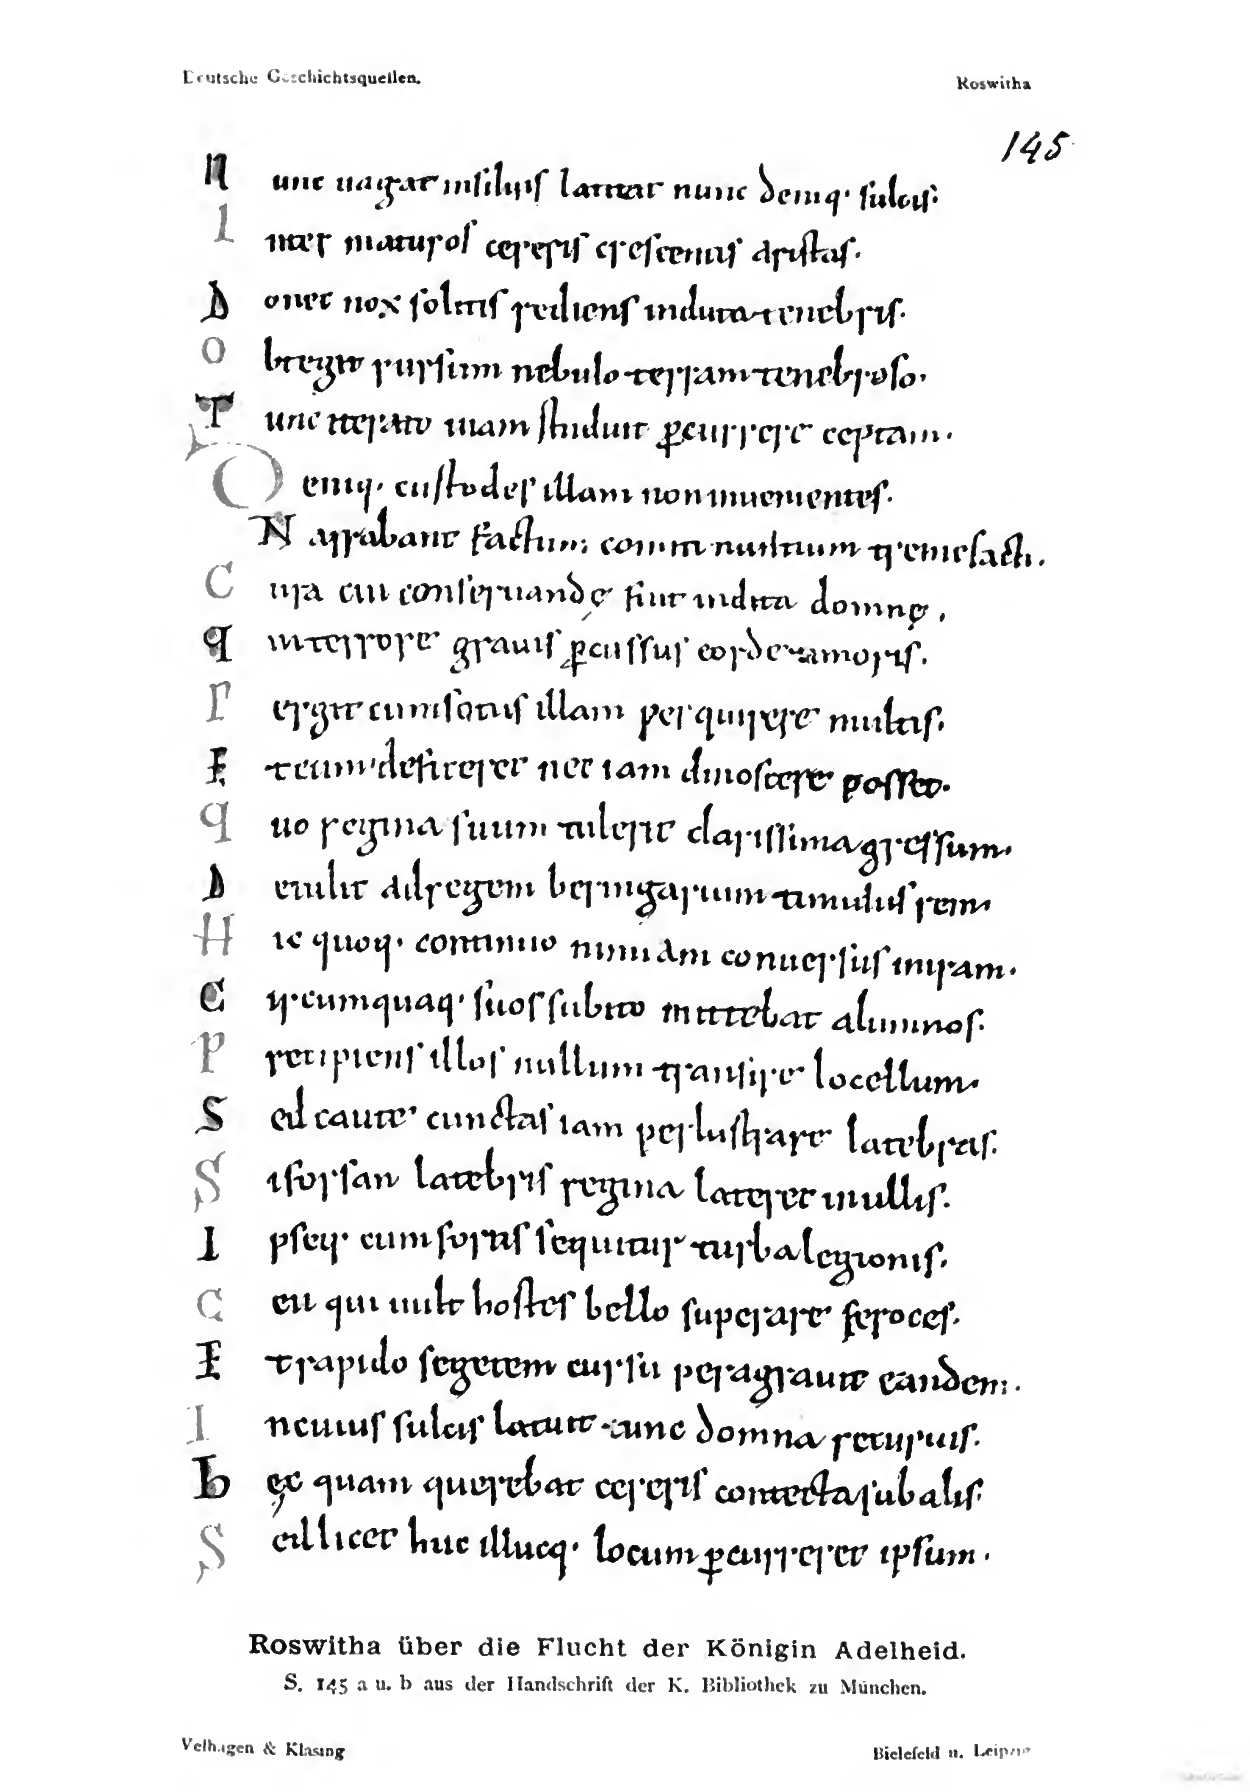 Deutsche Geschichtsquellen.
Roswitha
145
Nunc uagat insiluis latitat nunc demq· sulcis·
Inter maturos cereris crescentis aristas·
Donec nox solitis rediens induta tenebris·
Obtegit rursum nebulo terram tenebroso·
Tunc iterato uiam studuit ꝑcurrere ceptam·
Demq· custodes illam non inuenientes·
Narrabant factum comiti nimium tremefacti·
Cura cui conseruandę fiut indita domnę,
Qui terrore grauis ꝑcussus corde amoris·
Pergit cum sotiis illam perquirere multis·
Et cum deficeret nec iam dinoscere posset·
Quo regina suum tulerit clarissima gressum·
Detulit ad regem beringarium timidus rem·
Hic quoq· continuo nimiam conuersus in iram·
Circumquaq· suos subito mittebat alumnos·
Precipiens illos nullum transire locellum·
Sed caute cunctas iam perlustrare latebras·
Si forsan latebris regina lateret in ullis·
Ipseq· cum fortis sequitur turba legionis·
Ceu qui uult hostes bello superare feroces·
Et rapido segetem cursu peragrauit eandem·
In cuius sulcis latuit tunc domna recuruis·
Hęc quam querebat cereris contecta sub alis·
Scilicet huc illucq· locum ꝑcurreret ipsum·
Roswitha über die Flucht der Königin Adelheid.
S. 145 a u. b aus der Handschrift der K. Bibliothek zu München.
Velhagen & Klasing
Bielefeld u. Leipzig